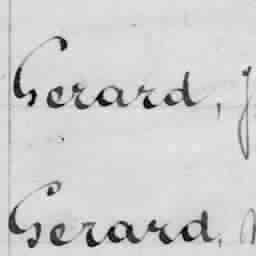 Gerard,
Gerard,